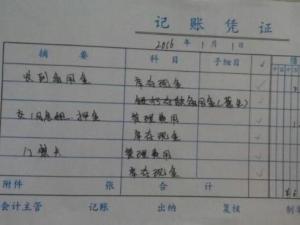 记账凭证
2016年1月1日
摘要 科目 子细目 √
收到备用金 库存现金 √
银行存款备用金(基本) √
交1月房租、押金 管理费用 √
库存现金 √
门禁卡 管理费用 √
库存现金 √
附件 张 合计
会计主管 记账 出纳 复核 制单